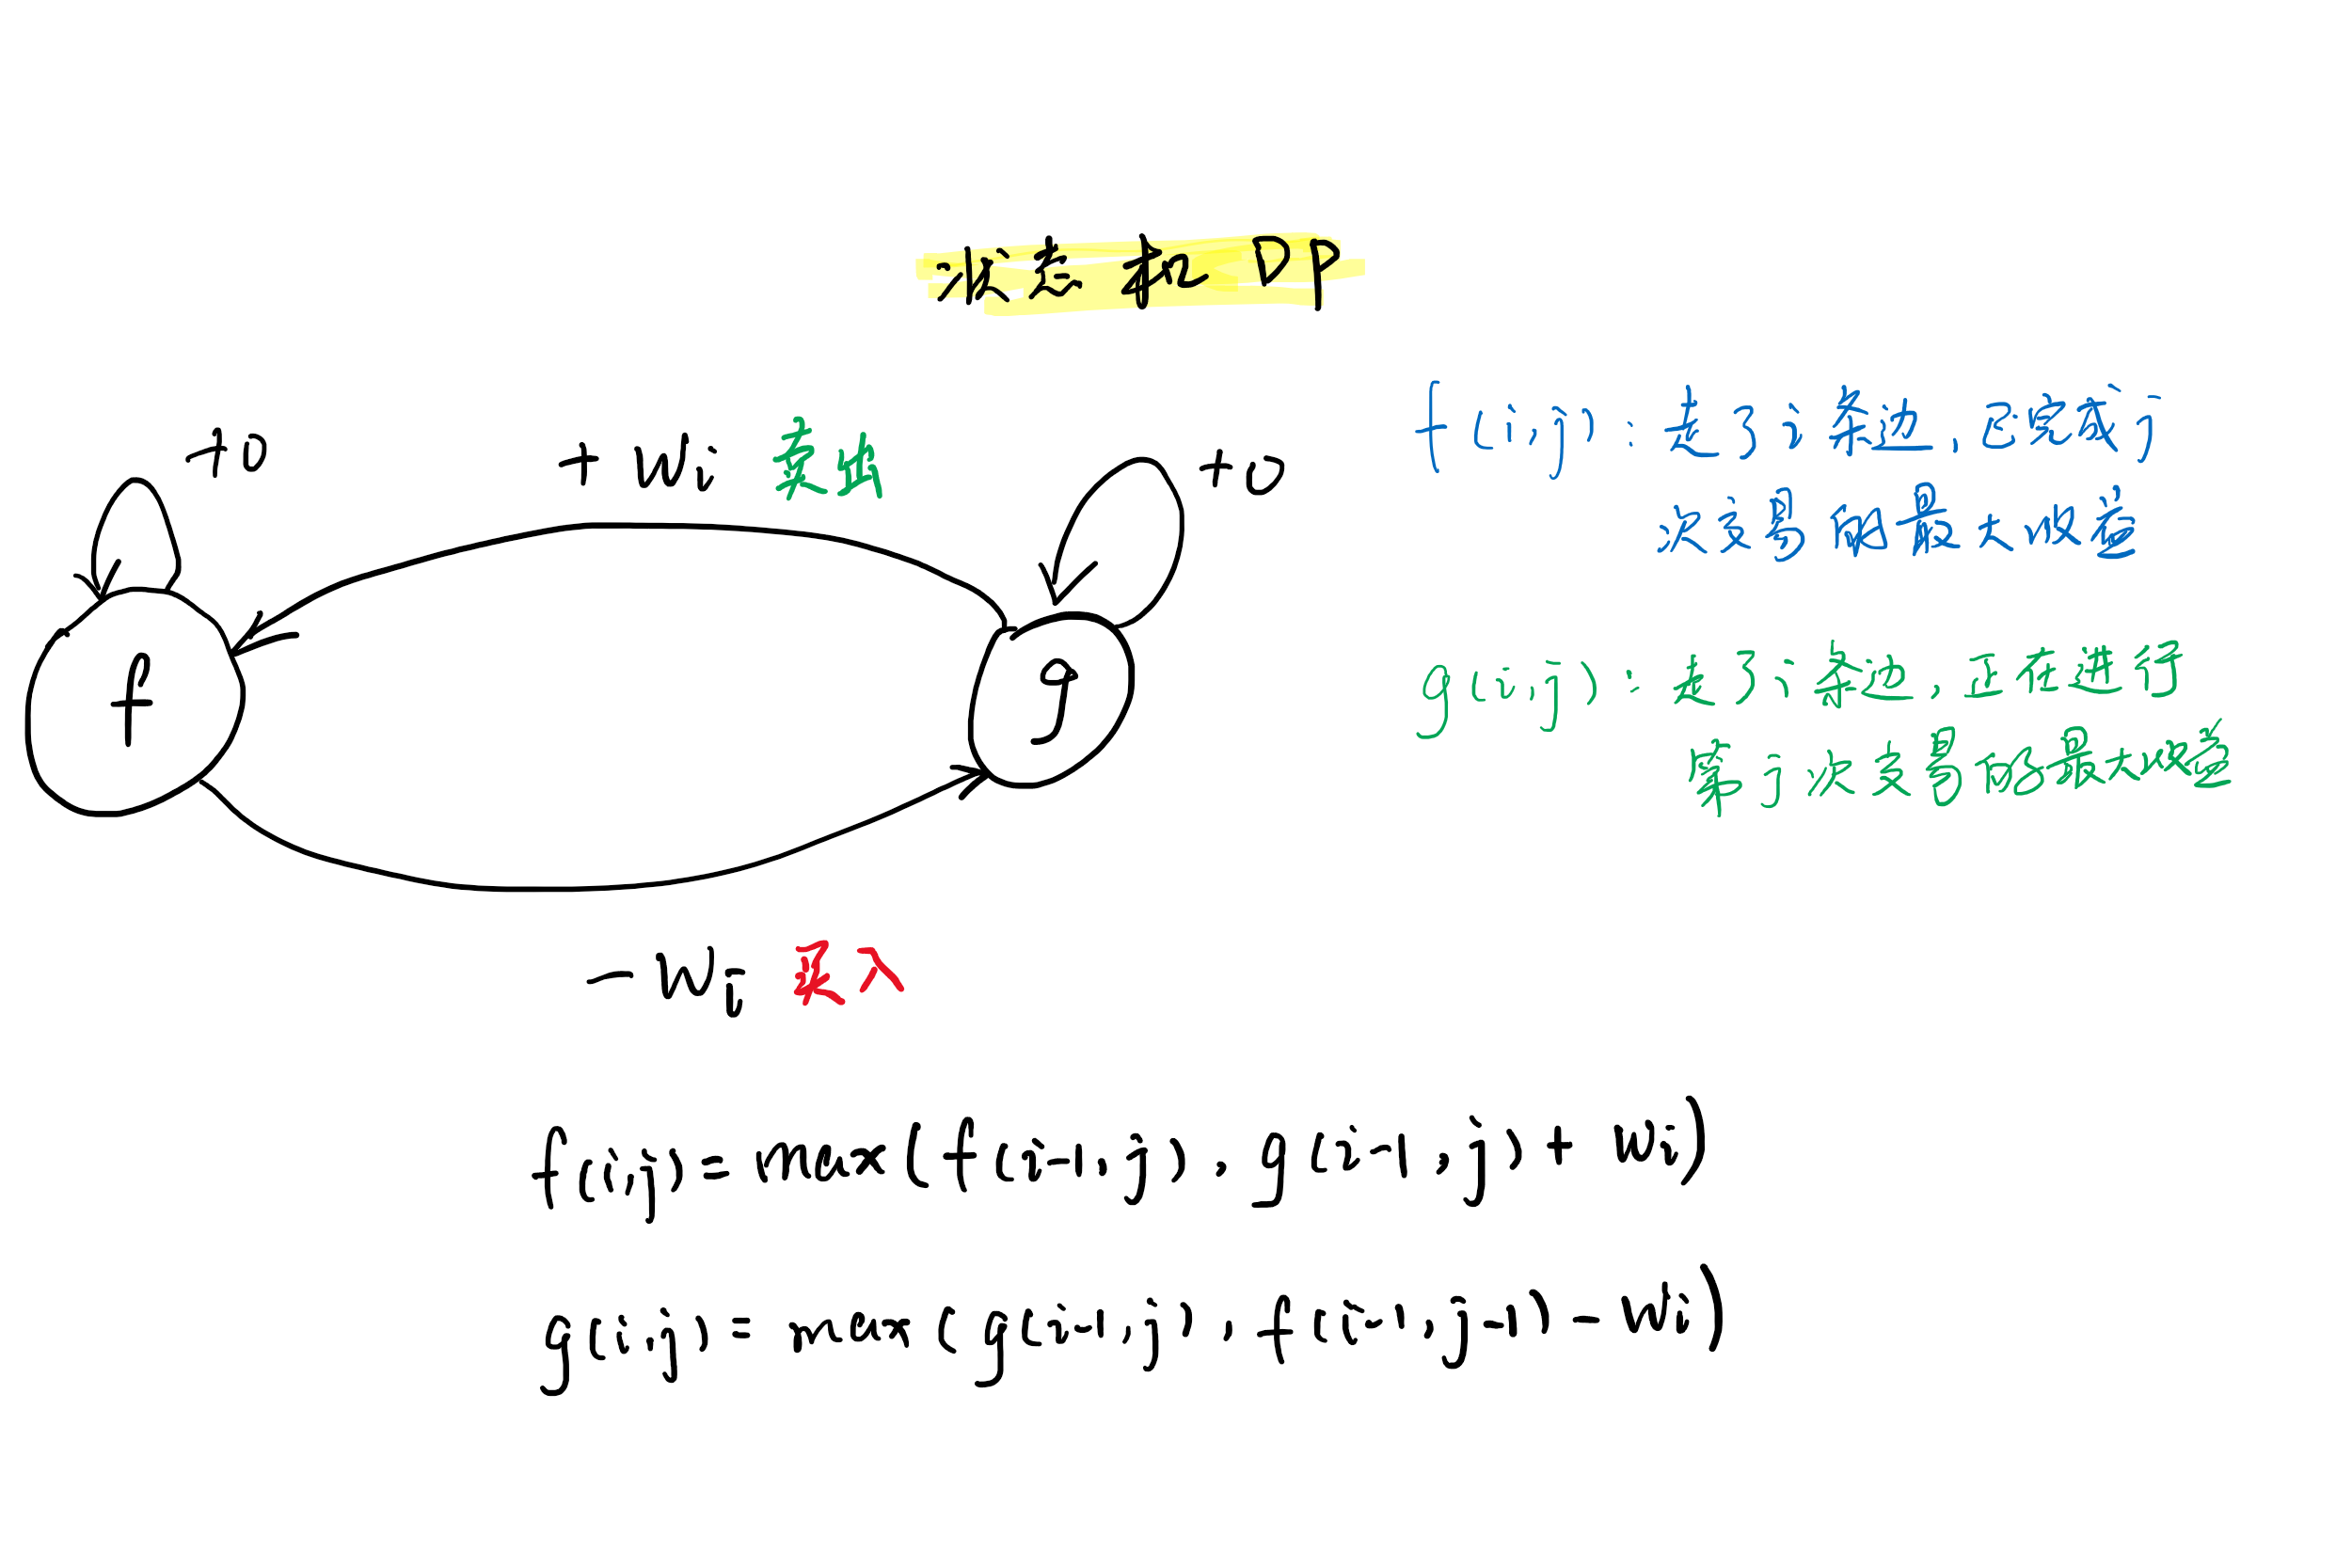 状态机DP
+0
+ Wi 卖出
+0
f(i,j): 走了i条边,已完成j
次交易的最大收益
g(i,j): 走了i条边,正在进行
第j次交易的最大收益
f
g
- Wi 买入
f(i,j) = max(f(i-1,j), g(i-1,j) + Wi)
g(i,j) = max(g(i-1,j), f(i-1,j-1) - Wi)